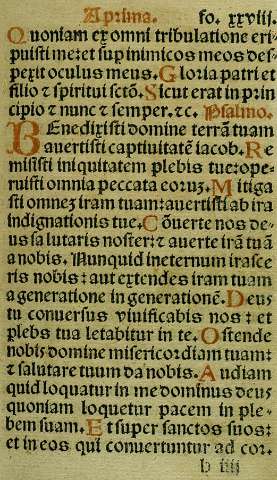 A prima. fo. xxviij.
Quoniam ex omni tribulatione eri-
puisti me: et sup inimicos meos des-
pexit oculus meus. Gloria patri et
filio ⁊ spiritui scto. Sicut erat in prin
cipio ⁊ nunc ⁊ semper. ⁊c. Psalmo.
BEnedixisti domine terrā tuam
auertisti captiuitatē iacob. Re
misisti iniquitatem plebis tue: ope-
ruisti omnia peccata eoruꝫ. Mitiga
sti omneꝫ iram tuam: auertisti ab ira
indignationis tue. Cōuerte nos de-
us salutaris noster: ⁊ auerte irā tuā
a nobis. Nunquid ineternum irasce
ris nobis: aut extendes iram tuam
a generatione in generationē. Deus
tu conuersus viuificabis nos: et
plebs tua letabitur in te. Ostende
nobis domine misericordiam tuam:
⁊ salutare tuum da nobis. Audiam
quid loquatur in me dominus deus
quoniam loquetur pacem in ple-
bem suam. Et super sanctos suos:
et in eos qui conuertuntur ad cor.
b iiij